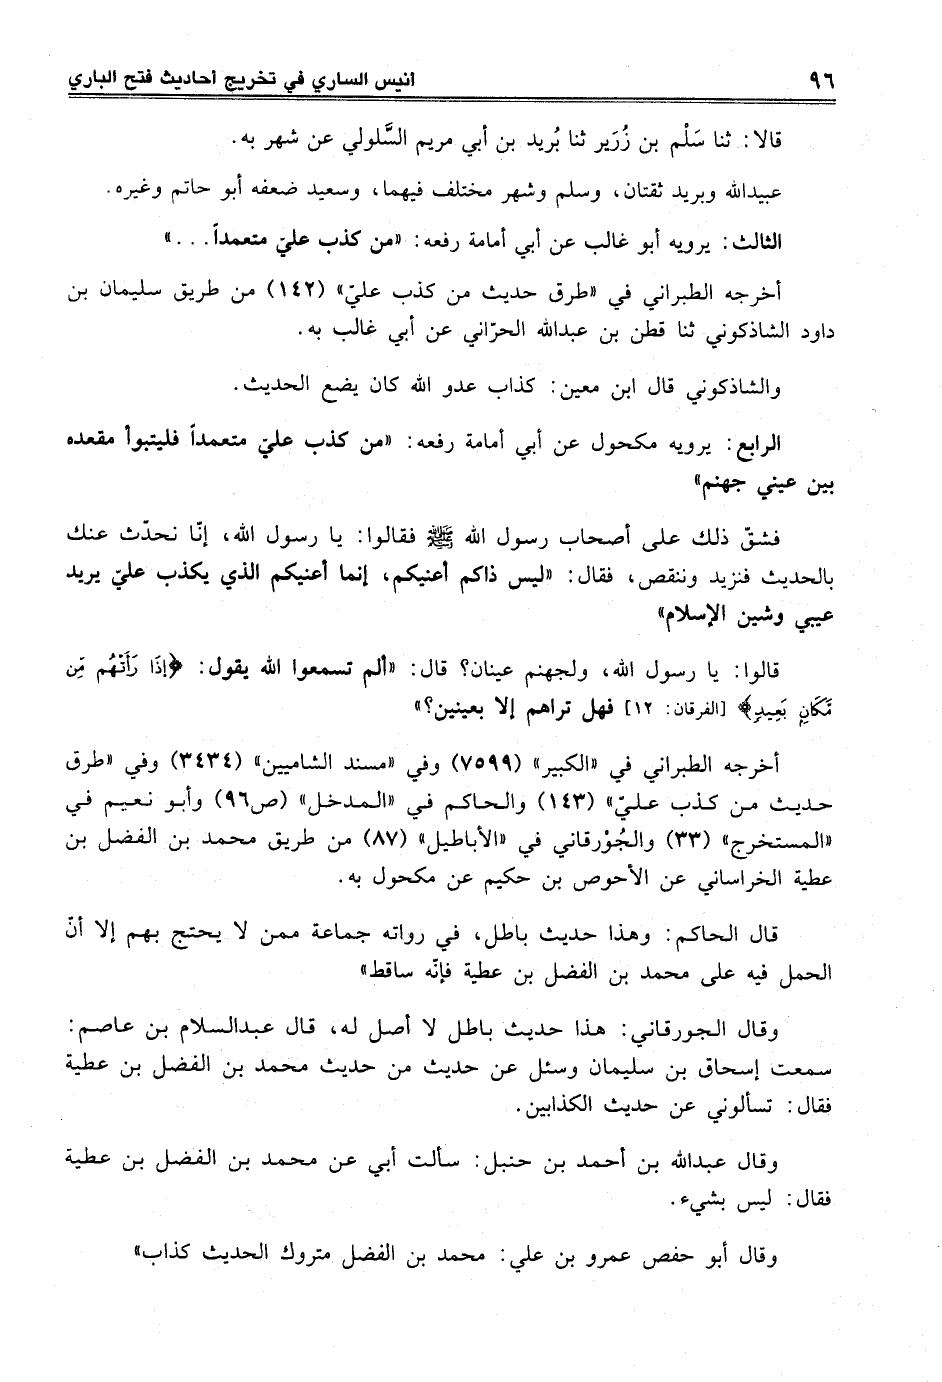 ٩٦
أنيس الساري في تخريج أحاديث فتح الباري
قالا: ثنا سَلْم بن زُرَير ثنا بُريد بن أبي مريم السَّلولي عن شهر به.
عبيدالله وبريد ثقتان، وسلم وشهر مختلف فيهما، وسعيد ضعفه أبو حاتم وغيره.
الثالث: يرويه أبو غالب عن أبي أمامة رفعه: «من كذب عليّ متعمداً...»
أخرجه الطبراني في «طرق حديث من كذب عليّ» (١٤٢) من طريق سليمان بن
داود الشاذكوني ثنا قطن بن عبدالله الحرّاني عن أبي غالب به.
والشاذكوني قال ابن معين: كذاب عدو الله كان يضع الحديث.
الرابع: يرويه مكحول عن أبي أمامة رفعه: «من كذب عليّ متعمداً فليتبوأ مقعده
بين عيني جهنم»
فشقّ ذلك على أصحاب رسول الله ﷺ فقالوا: يا رسول الله، إنّا نحدّث عنك
بالحديث فنزيد وننقص، فقال: «ليس ذاكم أعنيكم، إنما أعنيكم الذي يكذب عليّ يريد
عيبي وشين الإسلام»
قالوا: يا رسول الله، ولجهنم عينان؟ قال: «ألم تسمعوا الله يقول: ﴿إِذَا رَأَتْهُم مِّن
مَّكَانٍ بَعِيدٍ﴾ [الفرقان: ١٢] فهل تراهم إلا بعينين؟»
أخرجه الطبراني في «الكبير» (٧٥٩٩) وفي «مسند الشاميين» (٣٤٣٤) وفي «طرق
حديث من كذب عليّ» (١٤٣) والحاكم في «المدخل» (ص٩٦) وأبو نعيم في
«المستخرج» (٣٣) والجُوْرقاني في «الأباطيل» (٨٧) من طريق محمد بن الفضل بن
عطية الخراساني عن الأحوص بن حكيم عن مكحول به.
قال الحاكم: وهذا حديث باطل، في رواته جماعة ممن لا يحتج بهم إلا أنّ
الحمل فيه على محمد بن الفضل بن عطية فإنّه ساقط»
وقال الجورقاني: هذا حديث باطل لا أصل له، قال عبدالسلام بن عاصم:
سمعت إسحاق بن سليمان وسئل عن حديث من حديث محمد بن الفضل بن عطية
فقال: تسألوني عن حديث الكذابين.
وقال عبدالله بن أحمد بن حنبل: سألت أبي عن محمد بن الفضل بن عطية
فقال: ليس بشيء.
وقال أبو حفص عمرو بن علي: محمد بن الفضل متروك الحديث كذاب»